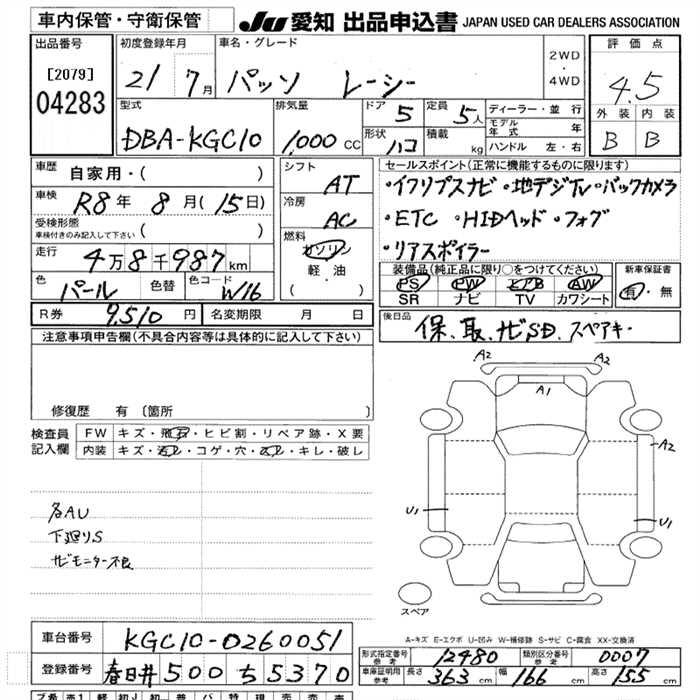 車内保管・守衛保管 JU 愛知 出品申込書 JAPAN USED CAR DEALERS ASSOCIATION
出品番号 初度登録年月 車名・グレード 評価点
[2079] 21 7月 パッソ レーシー 2WD・4WD 4.5
04283
型式 排気量 ドア 5 定員 5人 ディーラー・並行 外装 内装
DBA-KGC10 1,000 CC 形状 ハコ 積載 kg モデル年式 年 B B
ハンドル 左・右
車歴 自家用・( ) シフト AT セールスポイント(正常に機能するものに限ります)
車検 R8年 8月(15日) 冷房 AC ・イクリプスナビ・地デジTV・バックカメラ
受検形態 車検付きのみ記入して下さい ( ) 燃料 ガソリン ・ETC ・HIDヘッド・フォグ
走行 4万8千987km 軽・油 ・リアスポイラー
色 パール 色替 色コード W16 ( ・ ) 装備品(純正品に限り○をつけてください) 新車保証書
PS PW エアB AW 有・無
SR ナビ TV カワシート
R券 9,510円 名変期限 月 日 後日品 保、取、ナビSD、スペアキー
注意事項申告欄(不具合内容等は具体的に記入して下さい)
A2 A2
A1
修復歴 有 [箇所 ]
検査員記入欄 FW キズ・飛石・ヒビ割・リペア跡・X要
内装 キズ・汚レ・コゲ・穴・スレ・キレ・破レ
A2
各AU
U1 U1
下廻りS
ナビモニター不良
スペア
A-キズ E-エクボ U-凹み W-補修跡 S-サビ C-腐食 XX-交換済
車台番号 KGC10-0260051
形式指定番号 参考 12480 類別区分番号 参考 0007
登録番号 春日井 500 ち 5370 車庫証明用 参考 長さ 363cm 幅 166cm 高さ 155cm